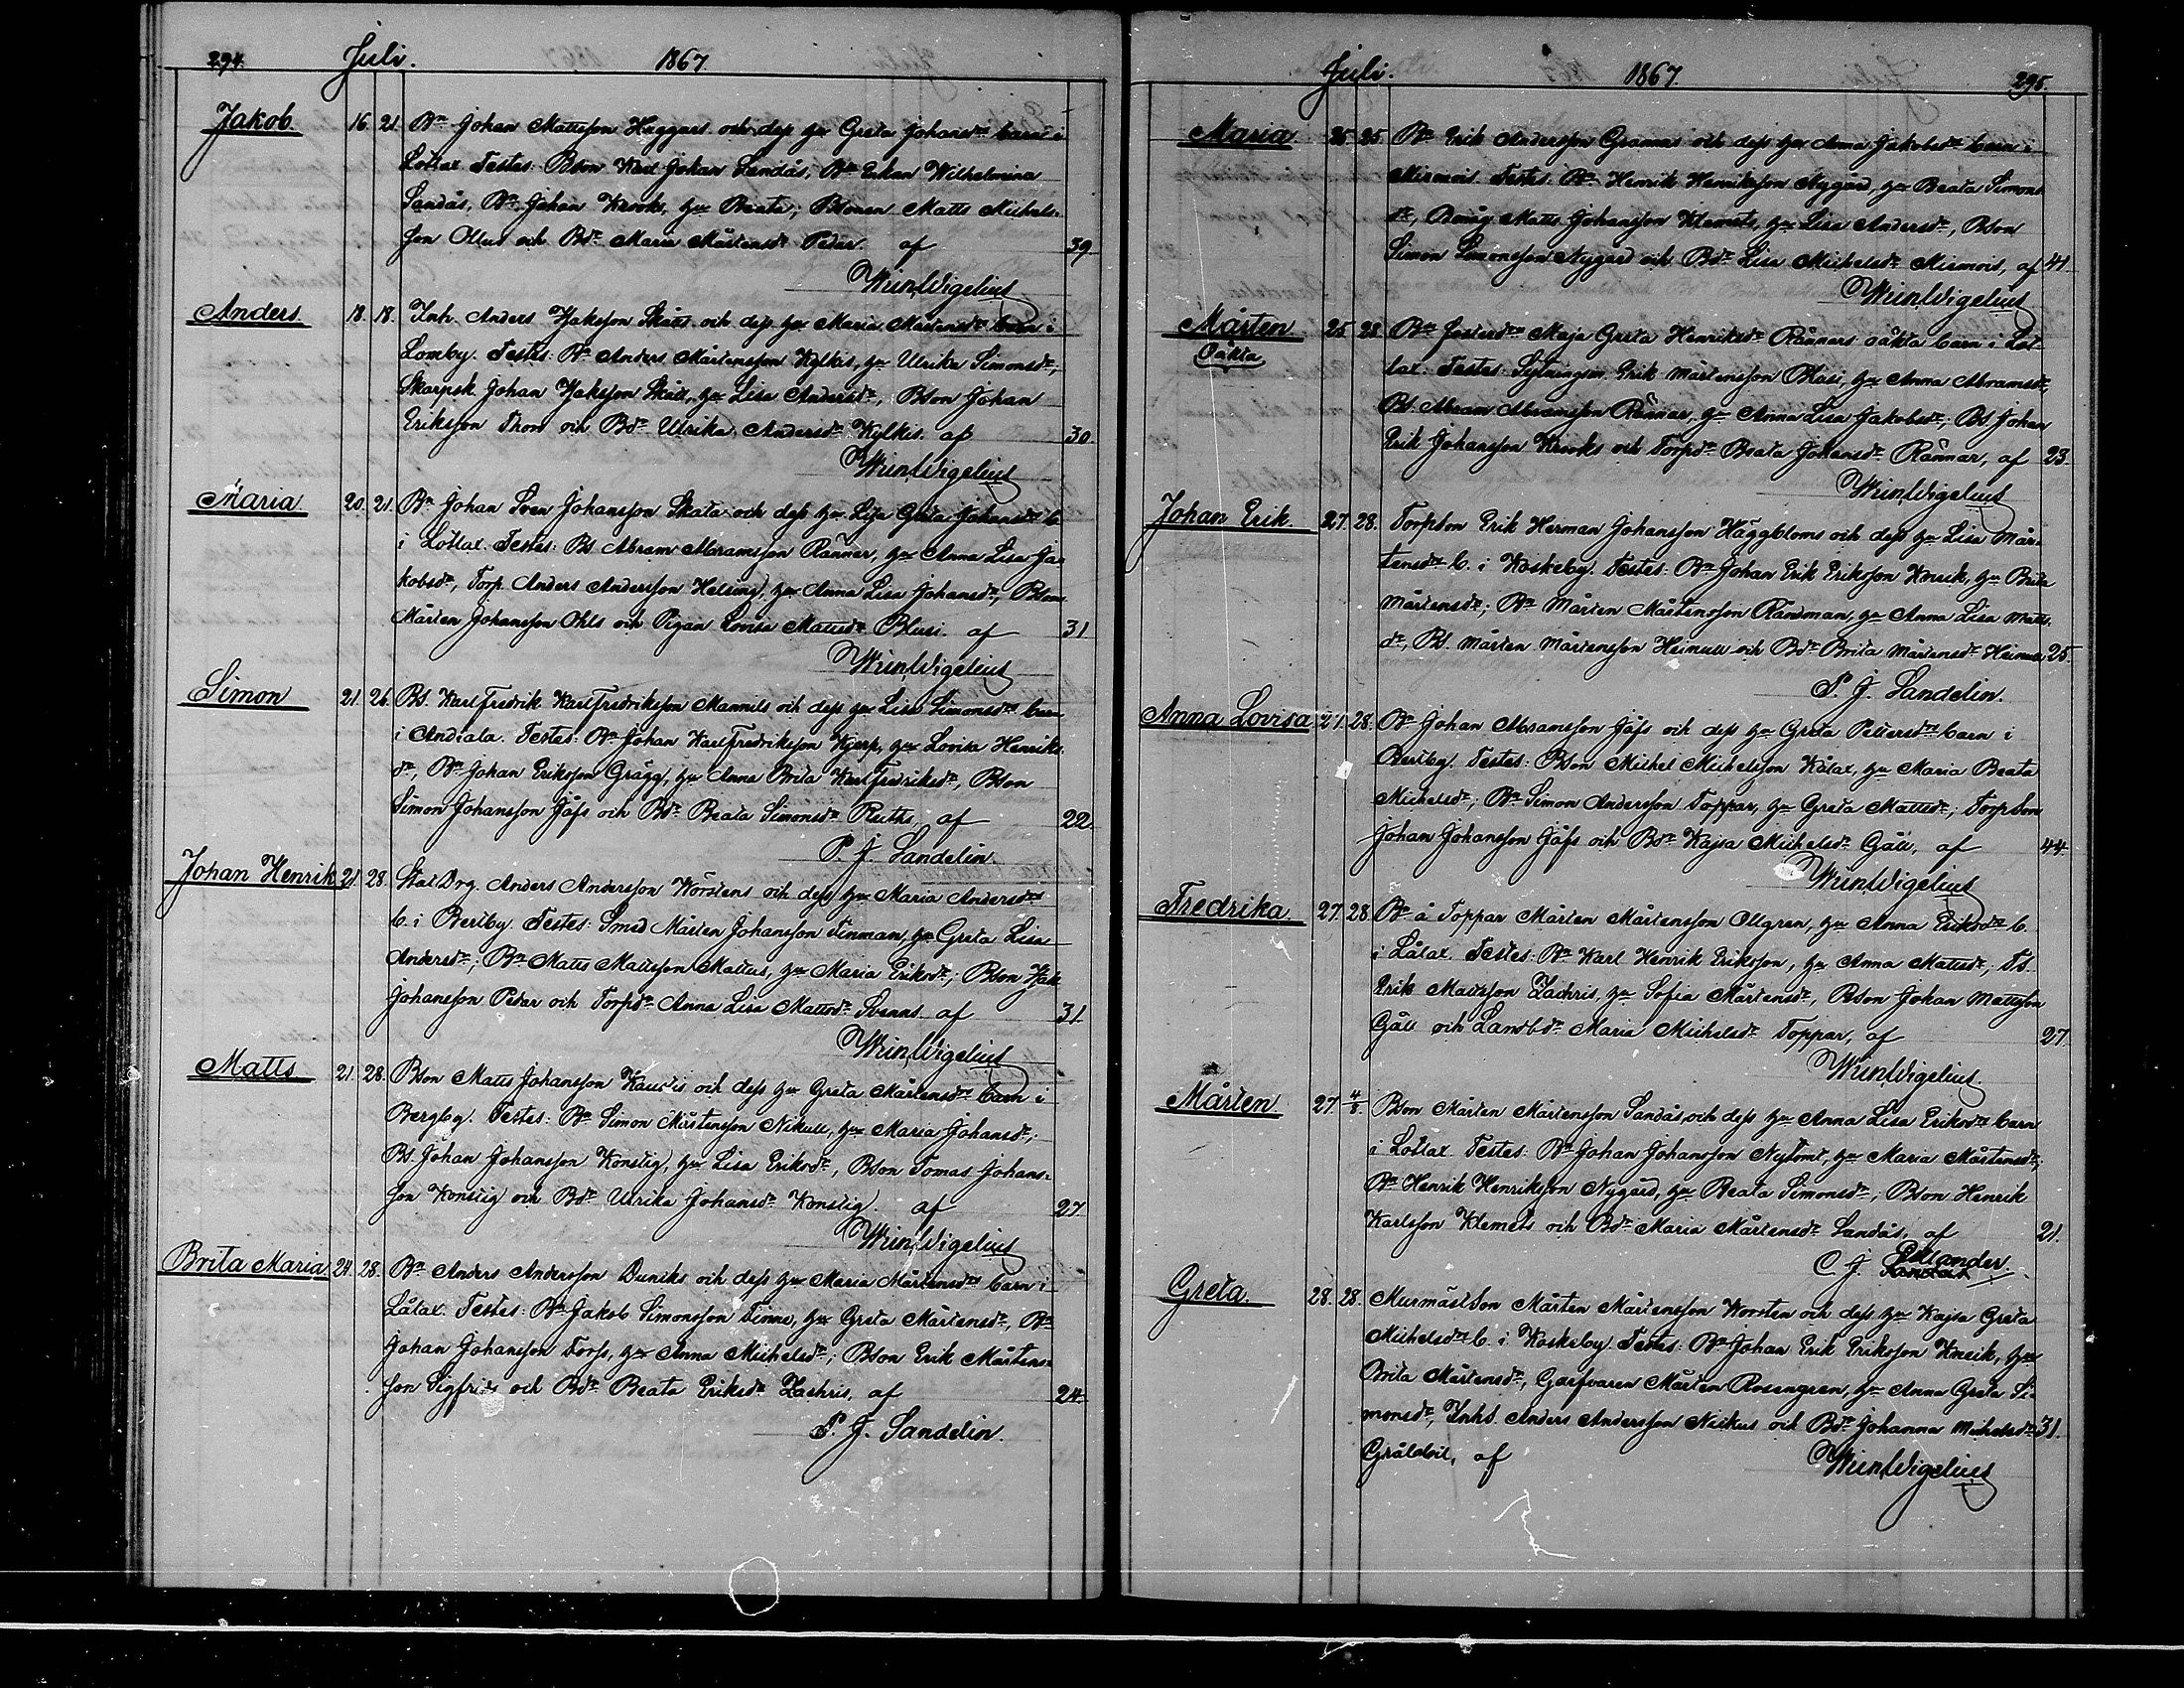 294. Juli. 1867.
Jakob. 16. 21. Bn Johan Mattsson Haggars och dess hu Greta Johansdrs barn i
Lötlax. Testes: Bson Karl Johan Sandås, Bn Enkan Wilhelmina
Sandås, Bn Johan Krooks, hu Beata; Bsonen Matts Michels-
son Ollus och Bdr Maria Mårtensdr Pedar. af 39
Wilh. Wigelius
Anders. 18. 18. Inh. Anders Isaksson Skått och dess hu Maria Mårtensdrs barn i
Lomby. Testes: Bn Anders Mårtensson Kylkis, hu Ulrika Simonsdr;
Skarpsk. Johan Isaksson Skått, hu Lisa Andersdr, Bson Johan
Eriksson Thors och Bdr Ulrika Andersdr Kylkis. af 30.
Maria 20. 21. Bn Johan Sven Johansson Skata och dess hu Lisa Greta Johansdrs b.
i Lötlax. Testes: Bs Abram Abramsson Rännar, hu Anna Lisa Ja-
kobsdr, Torp. Anders Andersson Helsing, hu Anna Lisa Johansdr, Bson
Mårten Johansson Ohls och Pigan Lovisa Mattsdr Blusi. af 31
Simon 21. 26. Bs. Karl Fredrik Karl Fredriksson Mannils och dess hu Lisa Simonsdrs barn
i Andiala. Testes: Bn Johan Karl Fredriksson Kjerp, hu Lovisa Henriks-
dr, Bn Johan Eriksson Grägg, hu Anna Brita Karl Fredriksdr, Bson
Simon Johansson Jåfs och Bdr Beata Simonsdr Ruths. af 22.
P. J. Sandelin.
Johan Henrik 21. 28. Stat Drg. Anders Andersson Korstens och dess hu Maria Andersdrs
b. i Bertby. Testes: Smed Mårten Johansson Finman, hu Greta Lisa
Andersdr; Bn Matts Mattsson Mattus, hu Maria Eriksdr; Bson Isak
Johansson Pedar och Torpdr Anna Lisa Mattsdr Svanns af 31
Matts 21. 28. Bson Matts Johansson och dess hu Greta Mårtensdrs barn i
Bergby. Testes: Bn Simon Mårtensson Nikull, hu Maria Johansdr;
Bs. Johan Johansson Konstig, hu Lisa Eriksdr, Bson Tomas Johans-
son Konstig och Bdr Ulrika Johansdr Konstig. af 27
Brita Maria. 24. 28. Bn Anders Andersson Duniks och dess hu Maria Mårtensdrs barn i
Lålax. Testes: Bn Jakob Simonsson Finne, hu Greta Mårtensdr, Bn
Johan Johansson Forss, hu Anna Michelsdr; Bson Erik Mårtens-
son Sigfrids och Bdr Beata Eriksdr Zachris, af 24.
P. J. Sandelin.
Juli. 1867. 295.
Maria 25. 25. Bn Erik Andersson Grannas och dess hu Anna Jakobsdrs barn i
Miemois. Testes: Bn Henrik Henriksson Nygård, hu Beata Simons-
dr, Matts Johansson Klemets, hu Lisa Andersdr, Bson
Simon Simonsson Nygård och Bdr Lisa Michelsdr Miemois, af 41
Mårten 25. 28. Bn fosterdr Maja Greta Henriksdr Rännars oäkta barn i Löt-
Oäkta
lax. Testes: Sytningsm. Erik Mårtensson Blusi, hu Anna Abramsdr,
Bs. Abram Abramsson Rännar, hu Anna Lisa Jakobsdr; Bs. Johan
Erik Johansson Krooks och Torpdr Beata Johansdr Rännar, af 23.
Johan Erik. 27. 28. TorpSon Erik Herman Johansson Häggbloms och dess hu Lisa Mår-
tensdrs b. i Koskeby. Testes: Bn Johan Erik Eriksson Kneik, hu Brita
Mårtensdr; Bn Mårten Mårtensson Randman, hu Anna Lisa Matts-
dr, Bs. Mårten Mårtensson Heimull och Bdr Brita Mårtensdr Heimull 25.
P. J. Sandelin.
Anna Lovisa 27. 28. Bn Johan Abramsson Jåfs och dess hu Greta Pettersdrs barn i
Bertby. Testes: Bson Michel Michelsson Kålax, hu Maria Beata
Michelsdr; Bn Simon Andersson Toppar, hu Greta Mattsdr; TorpSon
Johan Johansson Jåfs och Bdr Kajsa Michelsdr Gäll, af 44.
Fredrika 27. 28. Bn å Toppar Mårten Mårtensson Ollgren, hu Anna Eriksdrs b.
i Lålax. Testes: Bn Karl Henrik Eriksson, hu Anna Mattsdr; Ts.
Erik Mattsson Zachris, hu Sofia Mårtensdr, Bson Johan Mattsson
Gäll och Landbdr Maria Michelsdr Toppar, af 27
Mårten 27. 4/8. Bson Mårten Mårtensson Sandås, och dess hu Anna Lisa Eriksdrs barn
i Lötlax. Testes: Bn Johan Johansson Nytomt, hu Maria Mårtensdr;
Bn Henrik Henriksson Nygård, hu Beata Simonsdr; Bson Henrik
Karlsson Klemets och Bdr Maria Mårtensdr Sandås, af 21.
C. J.
Greta. 28. 28. MurmästSon Mårten Mårtensson Korsten och dess hu Kajsa Greta
Michelsdrs b. i Koskeby. Testes: Bn Johan Erik Eriksson Kneik, hu
Brita Mårtensdr, Garfvaren Mårten Rosengren, hu Anna Greta Si-
monsdr, Inhs. Anders Andersson Neikus och Bdr Johanna Michelsdr 31.
af
Wilh. Wigelius